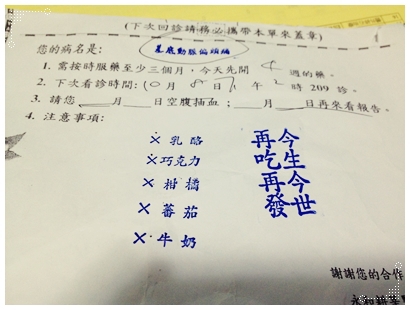 (下次回診請務必攜帶本單來蓋章)
您的病名是: 基底動脈偏頭痛
1. 需按時服藥至少三個月,今天先開 4 週的藥。
2. 下次看診時間: 10 月 8 日 午 2 時 209 診。
3. 請您 月 日空腹抽血; 月 日再來看報告。
4. 注意事項:
× 乳酪
× 巧克力
× 柑橘
× 蕃茄
× 牛奶
再今
吃生
再今
發世
謝謝您的合作
永和耕莘